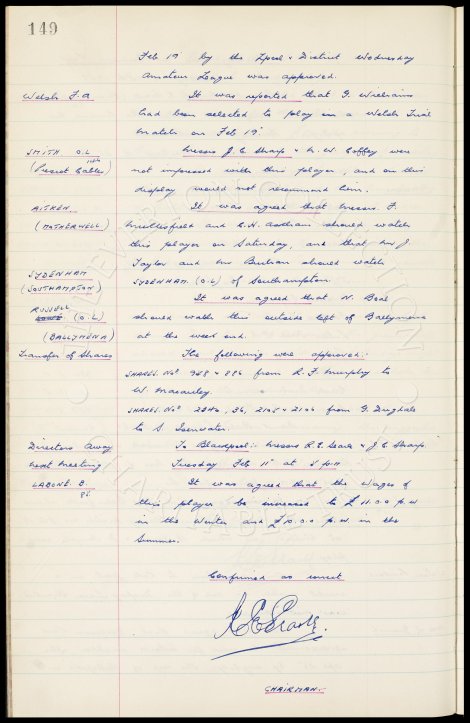 149
Feb 19 by the Lpool & District Wednesday
Amateur League was approved.
Welsh F.A
It was reported that G. Williams
had been selected to play in a Welsh Trial
Match on Feb 19
SMITH O.L
(Prescot Cables)
Messrs J.C. Sharp & H.W. Coffey were
not impressed with this player, and on this
display would not recommend him.
AITKEN
(MOTHERWELL)
It was agreed that Messrs F.
and C.H. Askham should watch
this player on Saturday, and that Mr J
Taylor and Mr Buchan should watch
SYDENHAM
(SOUTHAMPTON)
SYDENHAM (O.L) of Southampton.
RUSSELL
(O.L)
(BALLYMENA)
It was agreed that N. Beal
should watch this outside left of Ballymena
at the week end.
Transfer of Shares
The following were approved:-
SHARES. Nos & 886 from R.F. Murphy to
W. Macauley.
SHARES. Nos 36, 2105 & 2106 from G.
to S.
Directors Away
To Blackpool:- Messrs R.E. Searle & J.C. Sharp.
Next Meeting
Tuesday Feb 11th at 5 p.m.
LABONE. B.
It was agreed that the wages of
this player be increased to £11.0.0 p.w
in the Winter and £10.0.0 p.w. in the
Summer.
Confirmed as correct
CHAIRMAN.